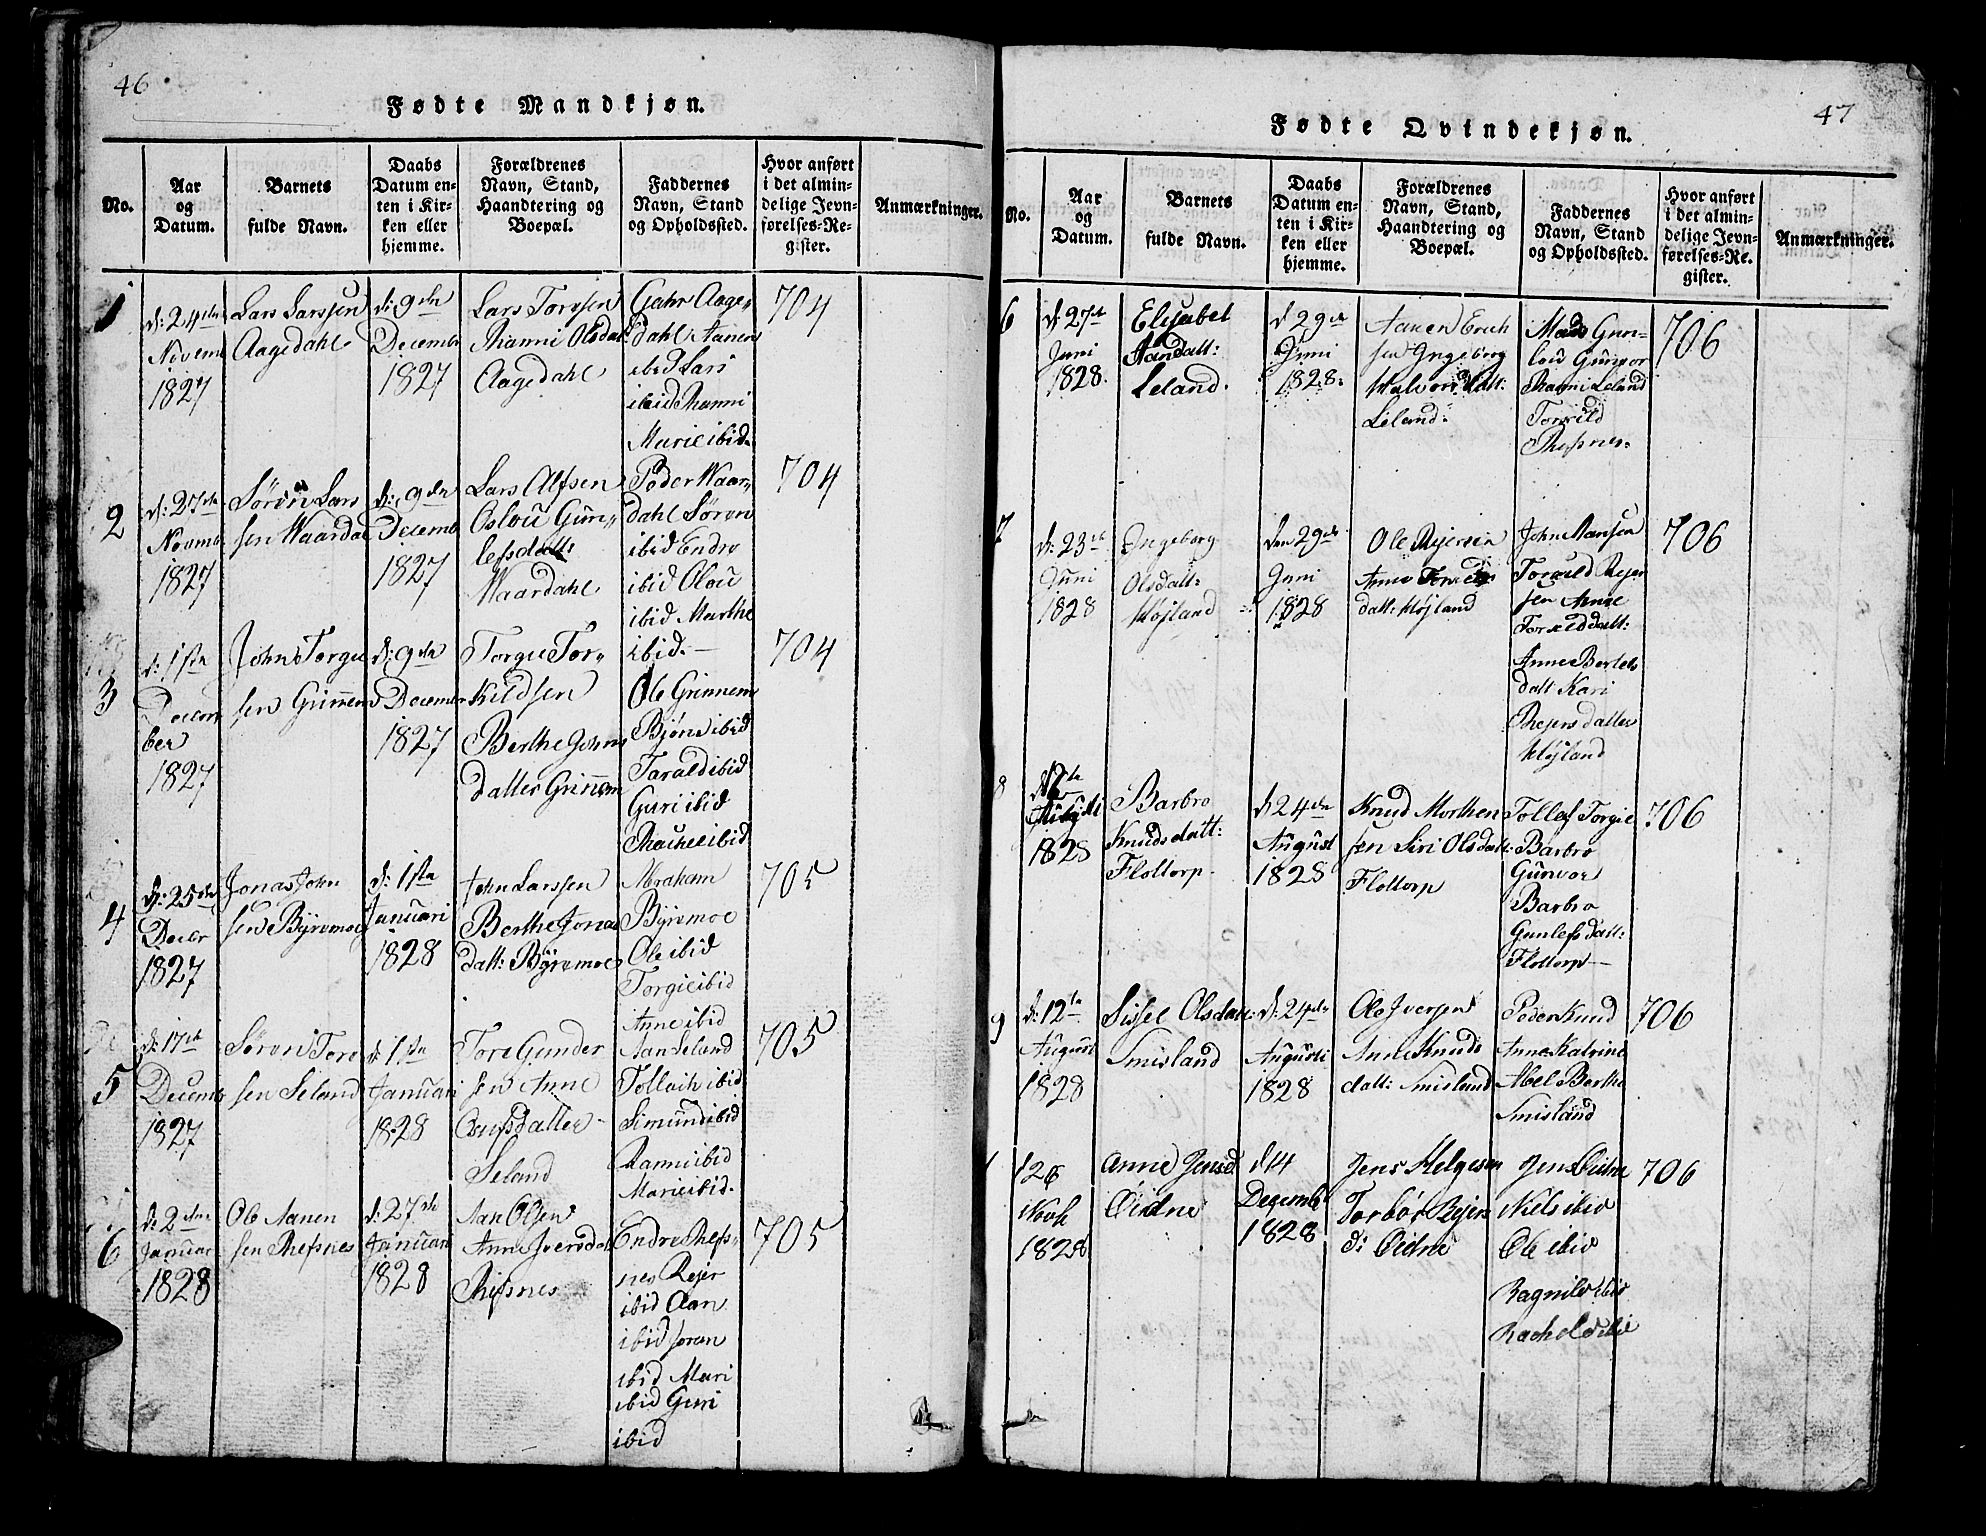 46
Fødte Mandkjøn.
No.
Aar
og
Datum.
Barnets
fulde Navn.
Daabs
Datum en-
ten i Kir-
ken eller
hjemme.
Forældrenes
Navn, Stand,
Haandtering og
Boepæl.
Faddernes
Navn, Stand
og Opholdssted.
Hvor anført
i det almin-
delige Jevn-
førelses-Re-
gister.
Anmærkninger.
1
d: 24de
Novemb
1827
Lars Larssen
Aagedahl
d: 9de
Decemb
1827
Lars Torssen
Ranni Olsdat:
Aagedahl
Gahr Aage-
dahl Aanen
ibid Lars
ibid Ranni
Marie ibid
704
2
d: 27de
Novemb
1827
Søren Lars
sen Waardal
d: 9de
Decemb
1827
Lars Alfsen
Oslou Gun-
lefsdatt:
Waardahl
Peder Waar-
dahl Søren
ibid Endre
ibid Olou
ibid Marthe
ibid
704
3
d: 1ste
Decem
ber
1827
John Torgu
sen Grimem
d: 9de
Decemb
1827
Torgu Tor-
kildsen
Berthe Johns
datter Grimem
Ole Grimem
Bjøne ibid
Tarald ibid
Guri ibid
Rachel ibid
704
4
d: 25de
Decbr
1827
Jonas John
sen Byremoe
d: 1ste
Januari
1828
John Larssen
Berthe Jonas
datt: Byremoe
Abraham
Byremoe
Ole ibid
Torgie ibid
Anne ibid
705
5
d: 17de
Decemb
1827
Søren Tore
sen Seland
d: 1ste
Januari
1828
Tore Gunder
sen Anne
datter
Seland
Aan Seland
Tollach ibid
Simund ibid
Ranni ibid
Marie ibid
705
6
d: 2den
Januar
1828
Ole Aanen
sen Refsnes
d: 27de
Januari
1828
Aan Olsen
Anne Iversdat
Refsnes
Endre Refs-
nes Rejer
ibid Aan
ibid Soren
ibid Mari
ibid Guri
ibid
705
47
Fødte Qvindekjøn.
No.
Aar
og
Datum.
Barnets
fulde Navn.
Daabs
Datum en-
ten i Kir-
ken eller
hjemme.
Forældrenes
Navn, Stand,
Haandtering og
Boepæl.
Faddernes
Navn, Stand
og Opholdssted.
Hvor anført
i det almin-
delige Jevn-
førelses-Re-
gister.
Anmærkninger.
6
d: 27de
Juni
1828
Elisabet
Aandatt:
Leland
d 29de
Juni
1828
Aanen Erich
sen Ingeborg
Halvorsdatt:
Leland
Mads Gun-
lou Gunvor
Ranni Leland
Torkild
Refsnes
706
7
d: 23de
Juni
1828
Ingeborg
Olsdatt:
Højland
den 29de
Juni
1828
Ole Rejersen
Anne Torkeld
datt: Højland
John Hansen
Torkeld Rejer
sen Anne
Torkelddatt:
Anne Bertels
datt Kari
Rejersdatter
Højland
706
8
1828
Barbro
Knudsdatt:
Flottorp
d 24de
August
1828
Knud Morthen
sen Siri Olsdatt:
Flottorp
Tollef Torgie
Barbro
Gunvor
Barbro
Gunlefsdatt:
Flottorp
706
9
d: 12te
August
1828
Sissel Olsdatt:
Smisland
d: 24de
Augusti
1828
Ole Iversen
Anne Knuds
datt: Smisland
Peder Knud
Anne Katrine
Abel Berthe
Smisland
706
1
126
Novb
1828
Anne Jensd
Øidne
d 14
Decemb
1828
Jens Helgesen
Torbør Rejers
d: Øidne
Jens Øidne
Niels ibid
Ole ibid
Ragnild ibid
Rachel ibid
706